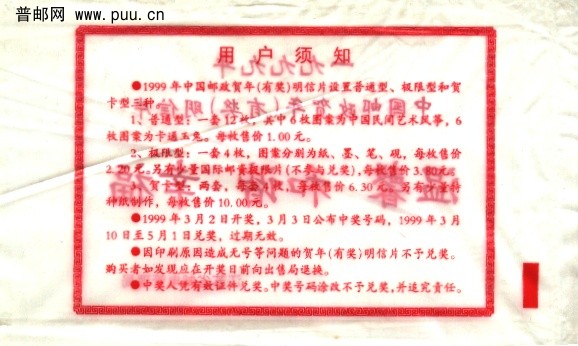 普邮网 www.puu.cn
用户须知
●1999年中国邮政贺年(有奖)明信片设置普通型、极限型和贺
卡型三种。
1、普通型：一套12枚，其中6枚图案为中国民间艺术风筝，6
枚图案为卡通玉兔。每枚售价1.00元。
2、极限型：一套4枚，图案分别为纸、墨、笔、砚，每枚售价
2.20元。另有少量国际邮资极限片(不参与兑奖)，每枚售价3.80元。
3、贺卡型：两套，每套4枚，每枚售价6.30元。另有少量特
种纸制作，每枚售价10.00元。
●1999年3月2日开奖，3月3日公布中奖号码，1999年3月
10日至5月1日兑奖，过期无效。
●因印刷原因造成无号等问题的贺年(有奖)明信片不予兑奖。
购买者如发现应在开奖日前向出售局退换。
●中奖人凭有效证件兑奖。中奖号码涂改不予兑奖，并追究责任。